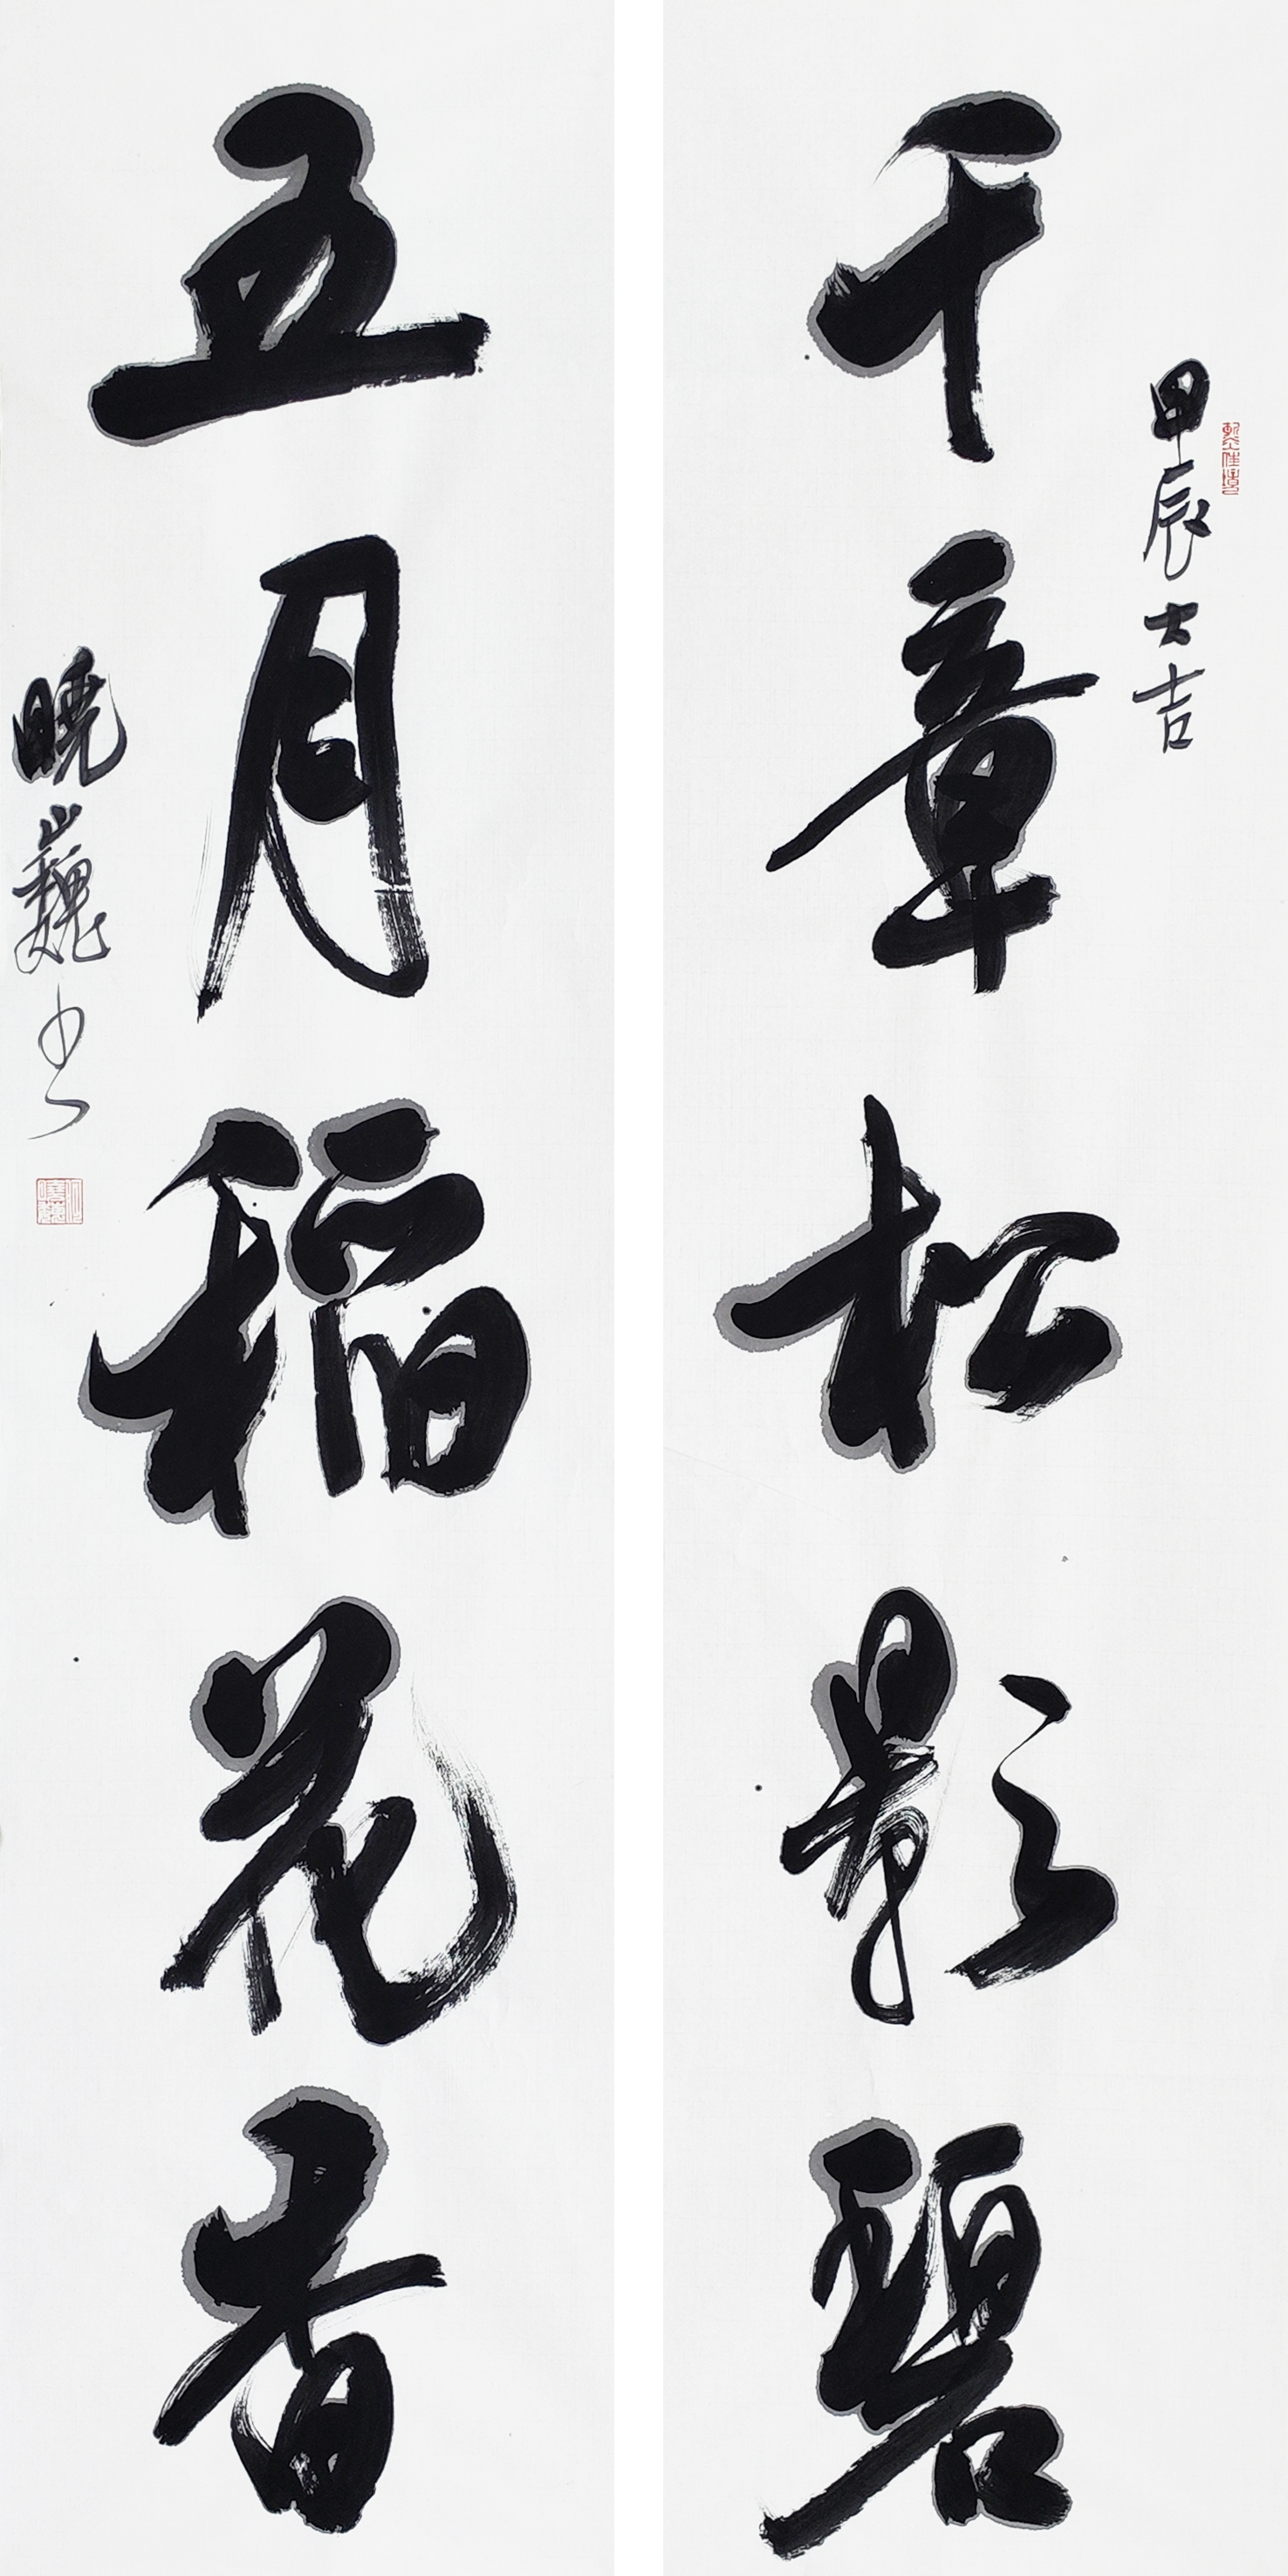 千章松影碧
甲辰大吉
五月稻花香
曉巍书